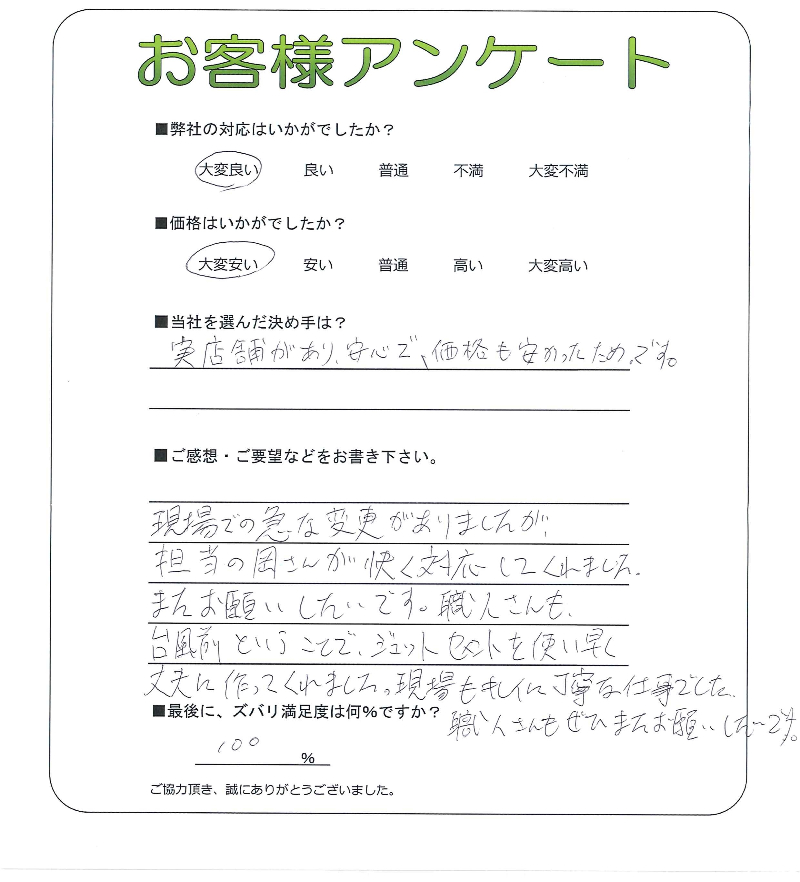 お客様アンケート
■弊社の対応はいかがでしたか？
大変良い 良い 普通 不満 大変不満
■価格はいかがでしたか？
大変安い 安い 普通 高い 大変高い
■当社を選んだ決め手は？
実店舗があり、安心で、価格も安かったため。です。
■ご感想・ご要望などをお書き下さい。
現場での急な変更がありましたが、
担当の岡さんが快く対応してくれました。
またお願いしたいです。職人さんも、
台風前ということで、ジェットセメントを使い早く
丈夫に作ってくれました。現場もキレイに丁寧な仕事でした。
■最後に、ズバリ満足度は何％ですか？
職人さんもぜひまたお願いしたいです。
100 %
ご協力頂き、誠にありがとうございました。